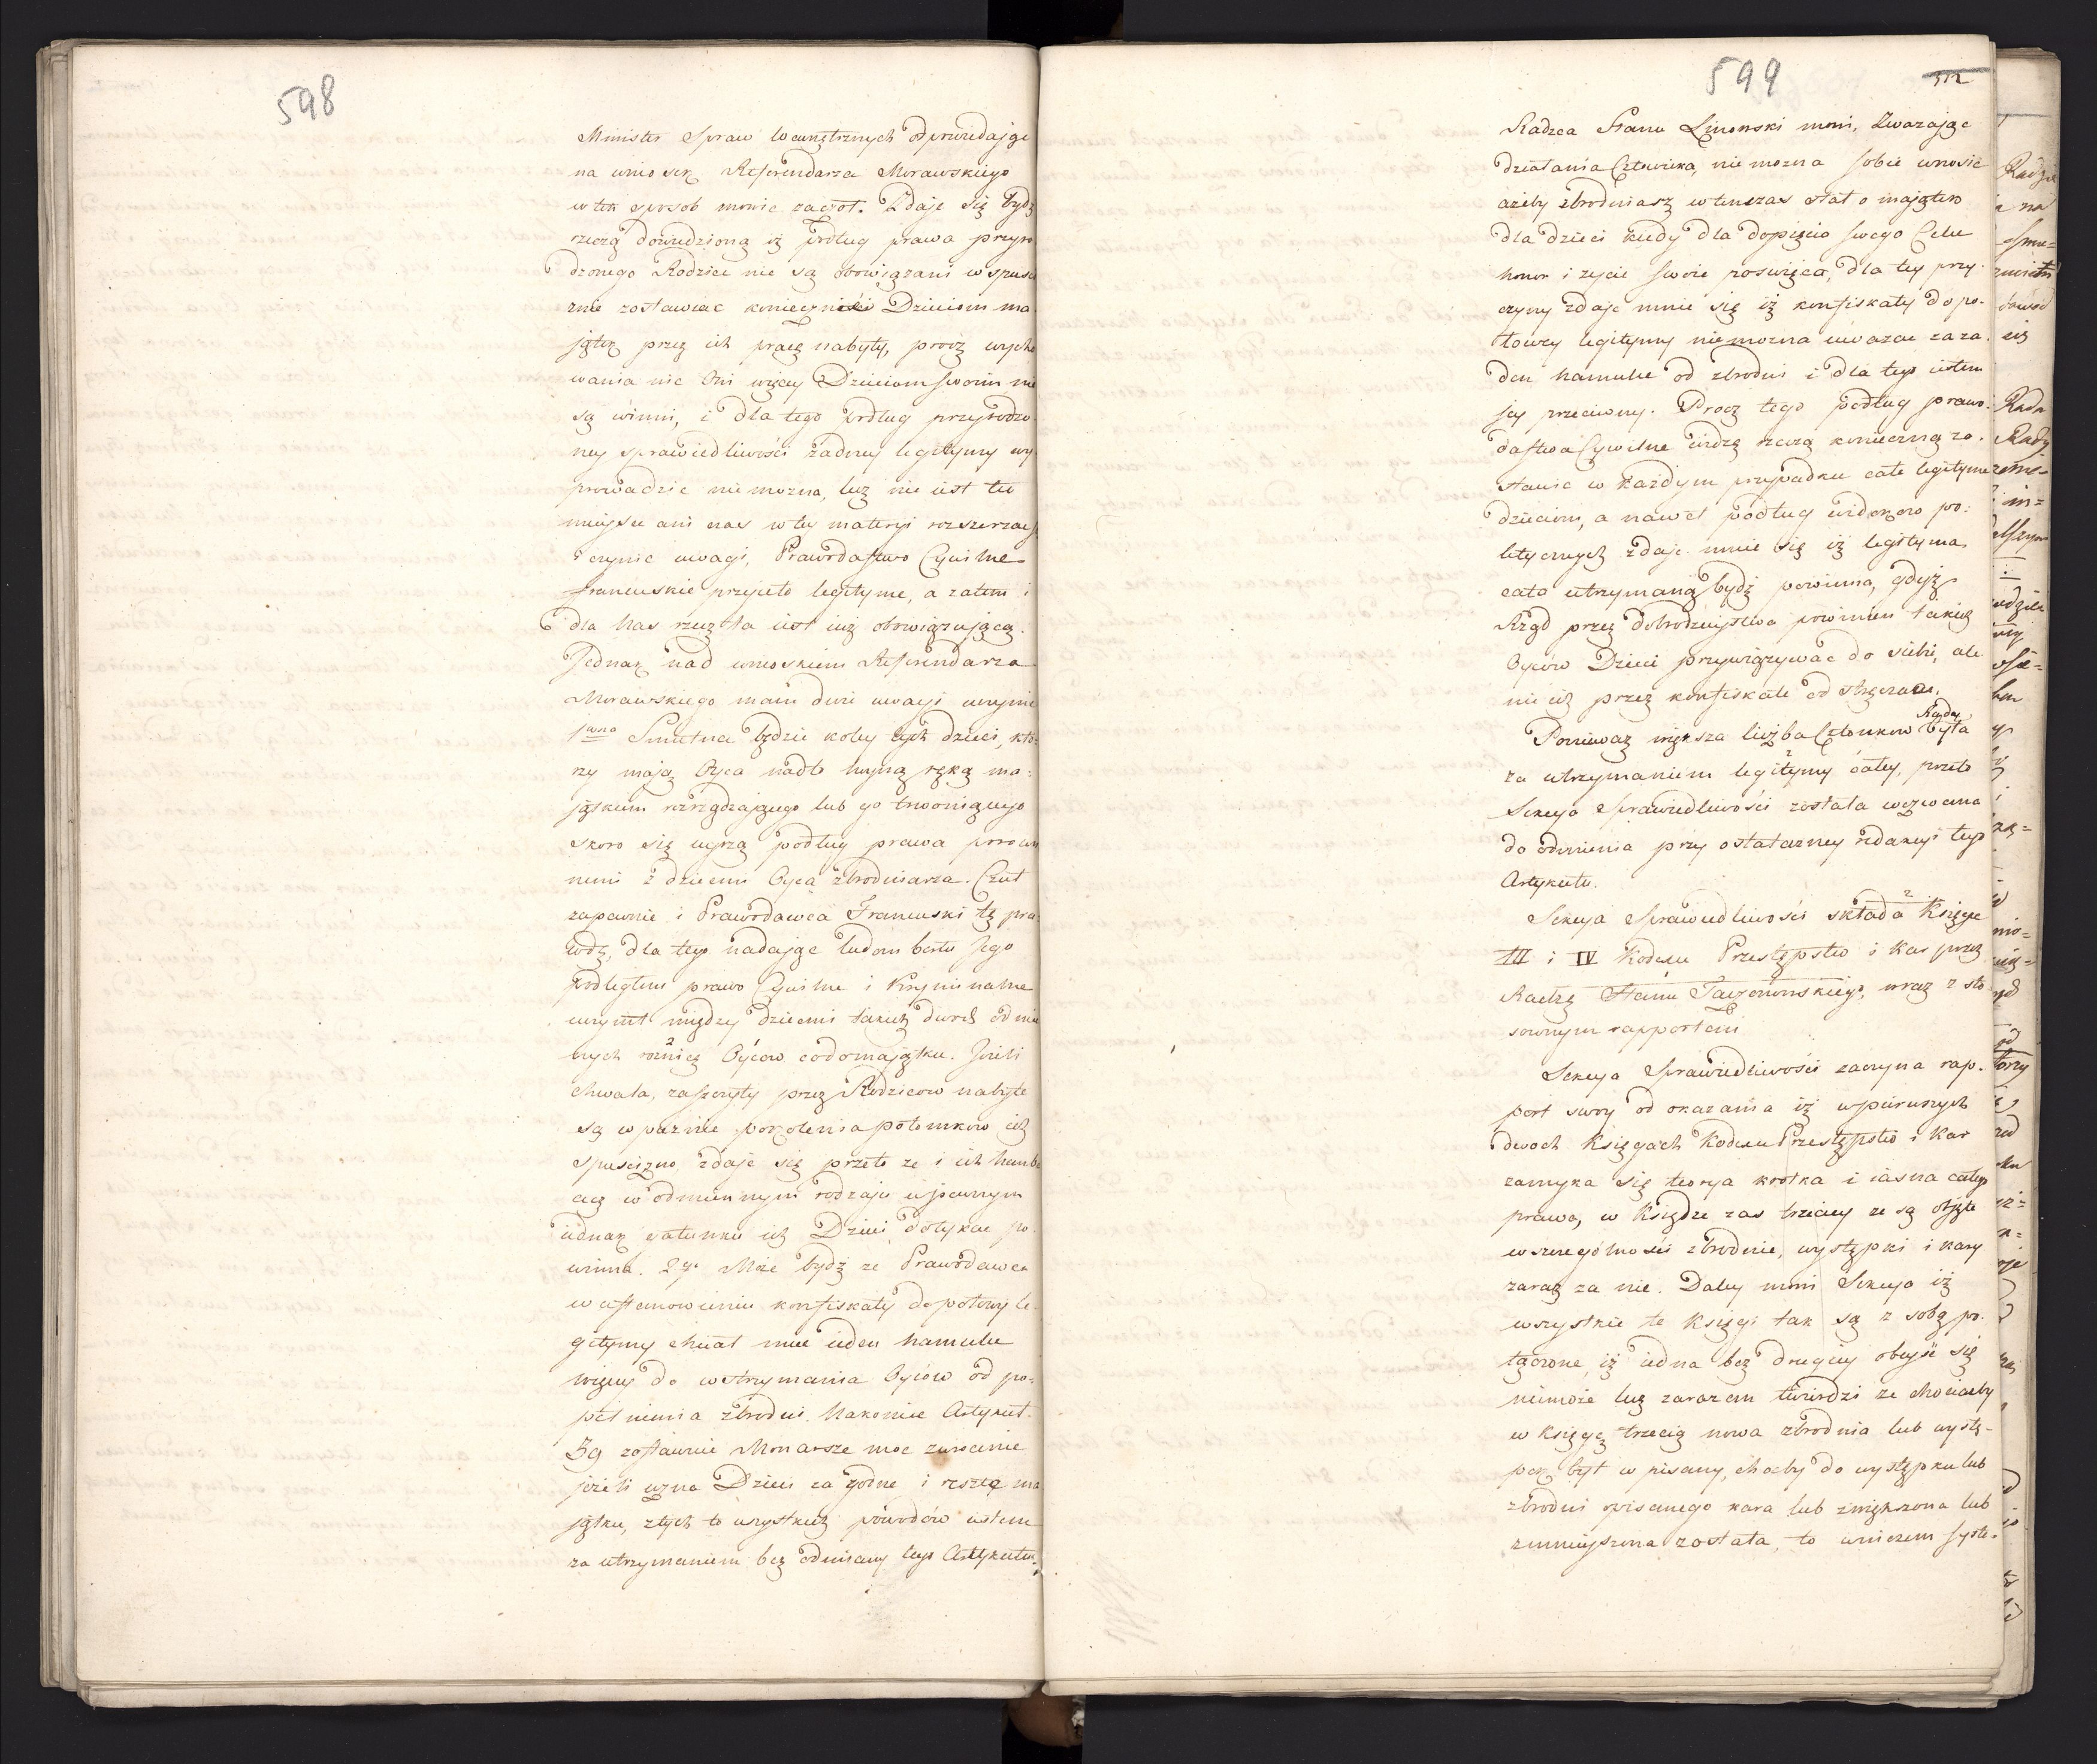 598
Minister Spraw Wewnętrznych odpowiedając
na wniosek Referendarza Morawskiego
w ten sposob mowić zaczął. Zdaje się bydź
rzeczą dowiedzioną iż podług prawa przyro
dzonego Rodzice nie są obowiązani w spusci
znie zostawiać koniecznie Dzieciom ma
jątek przez ich pracę nabyty, procz wycho
wania nic Oni więcey Dzieciom swoim nie
są winni, i dla tego podług przyrodzo
ney sprawiedliwości żadney legitymy wy
prowadzic nie można, lecz nie iest tu
mieysce ani czas w tey materyi rozszerzać
i czynic uwagi, Prawodastwo Cywilne
francuskie przyieło legitymę, a zatem i
dla nas rzecz ta iest iuż obowiązującą.
Jednak nad wnioskiem Referendarza
Morawskiego mam dwie uwagi uczynić
1mo Smutna będzie koley tych dzieci, kto
rzy mają Oyca nadto hoyną ręką ma-
jątkiem rozrządzającego lub go trwoniącego
skoro się uyrzą podług prawa porown
nemi z dziecmi Oyca zbrodniarza. Czuł
zapewnie i Prawodawca Francuski tę pra
wdę, dla tego nadając ludom berłu Jego
podległem prawo Cywilne i Kryminalne
uczynił między dziecmi takich dwoch odmie
nych rożnicę Oycow co do majątku. Jeżeli
chwała, zaszczyty przez Rodzicow nabyte
są w pozne pokolenia potomkow ich
spuścizną, zdaje się przeto ze i ich hanba
acz w odmiennym rodzaju i pewnym
iednak gatunku ich Dzieci dotykac po
winna. 2do Może bydź ze Prawodawca
w ustanowieniu konfiskaty do połowy le
gitymy chciał miec ieden hamulec
więcey do wstrzymania Oycow od po-
pełnienia zbrodni. Nakoniec Artykuł
39 zostawuie Monarsze moc zwrocenia
jeżeli uzna Dzieci za godne i resztę ma
jątku, z tych to wszystkich powodów iestem
za utrzymaniem bez odmiany tego Artykułu.
599
312
Radzca Stanu Linowski mowi, Zwazając
działania Człowieka, nie można sobie wnosić
ażeby zbrodniarz wtenczas stał o majątek
dla dzieci kiedy dla dopięcia swego Celu
honor i zycie swoie poswięca, dla tey przy-
czyny zdaje mnie się iż konfiskaty do po-
łowy legitymy nie można uważać za ża-
den hamulec od zbrodni i dla tego iestem
jey przeciwny. Procz tego podług prawo-
dastwa Cywilne widzę rzeczą konieczną zo-
stawić w każdym przypadku całe legitymę
dzieciom, a nawet podług widokow po-
litycznych zdaje mnie się iż legityma
cało utrzymaną bydź powinna, gdyż
Rząd przez dobrodzieystwa powinien takich
Oyców Dzieci przywiązywać do siebie, ale
nie ich przez konfiskate od stręczać.
Ponieważ większa liczba Członkow Rady była
za utrzymaniem legitymy całey, przeto
Sekcya Sprawiedliwości została wezwana
do odmienia przy ostateczney redakcyi tego
Artykułu.
Sekcya Sprawiedliwości składa Księgę
III i IV Kodexu Przestępstw i Kar przez
Radzcę Stanu wraz z sto
sownym rapportem
Sekcya Sprawiedliwości zaczyna rap-
port swoy od okazania iż w pierwszych
dwoch Księgach Kodexu Przestępstw i Kar
zamyka się teorya krotka i iasna całego
prawa, w Księdze zas trzeciey ze są objęte
w szczególności zbrodnie, występki i kary
zaraz za nie. Daley mowi Sekcya iż
wszystkie te Księgi tak są z sobą po-
łączone, iż iedna bez drugiey obeyść się
niemoże lecz zarazem twierdzi ze chociażby
w księgę trzecią nowa zbrodnia lub wystę-
pek był w pisany, choćby do występku lub
zbrodni opisanego kara lub zwiększona lub
zmnieyszona została, to w niczem syste-